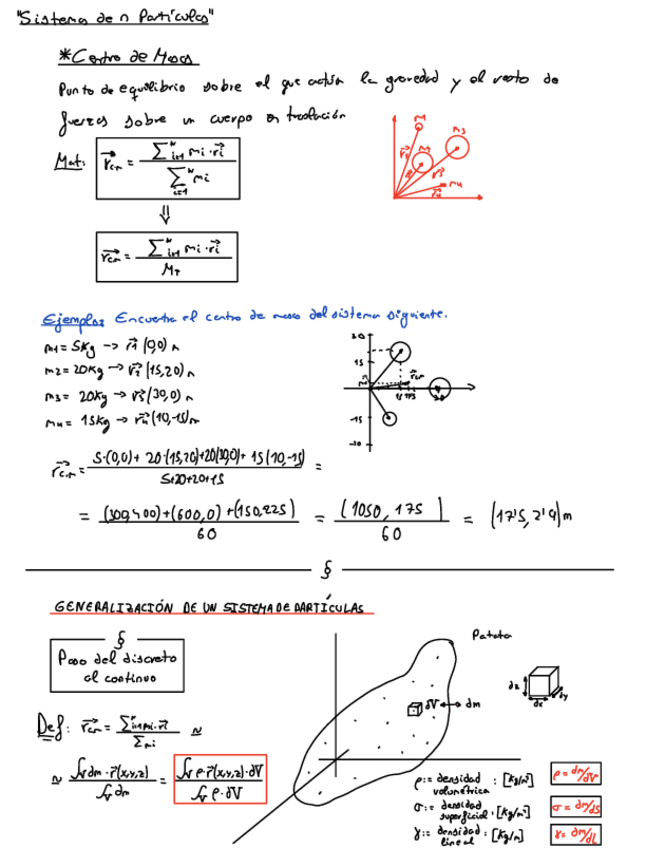 "Sistema de n Partículas"
*Centro de Masas
Punto de equilibrio sobre el que actúa la gravedad y el resto de
fuerzas sobre un cuerpo en traslación
Mat: r⃗cm = ∑ᴺi=1 mi·r⃗i / ∑ᴺi=1 mi
⇓
r⃗cm = ∑ᴺi=1 mi·r⃗i / MT
Ejemplo: Encuentra el centro de masas del sistema siguiente.
m1 = 5kg -> r⃗1 (0,0) m
m2 = 20kg -> r⃗2 (15,20) m
m3 = 20kg -> r⃗3 (30,0) m
m4 = 15kg -> r⃗4 (10,-15) m
r⃗c.m = 5·(0,0) + 20·(15,20) + 20(30,0) + 15(10,-15) / 5+20+20+15 =
= (300,400)+(600,0)+(150,225) / 60 = (1050, 175) / 60 = (17'5, 2'9) m
§
GENERALIZACIÓN DE UN SISTEMA DE PARTÍCULAS
§
Paso del discreto
al continuo
Patata
dV ↔ dm
dz
dx
dy
Def: r⃗cm = ∑i=1 mi·r⃗i / ∑mi ≈
≈ ∫v dm·r⃗(x,y,z) / ∫v dm = ∫v ρ·r⃗(x,y,z)·dV / ∫v ρ·dV
ρ:= densidad volumétrica : [kg/m³] ρ = dm/dV
σ:= densidad superficial : [kg/m²] σ = dm/dS
γ:= densidad lineal : [kg/m] γ = dm/dL